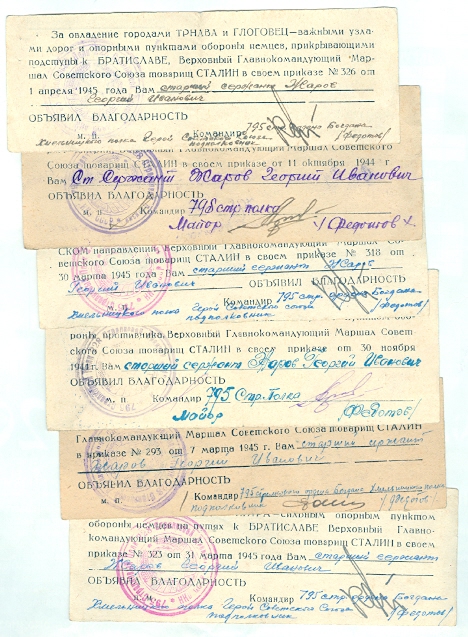 За овладение городами ТРНАВА и ГЛОГОВЕЦ—важными узла-
ми дорог и опорными пунктами обороны немцев, прикрывающими
подступы к БРАТИСЛАВЕ, Верховный Главнокомандующий Мар-
шал Советского Союза товарищ СТАЛИН в своем приказе № 326 от
1 апреля 1945 года Вам старший сержант Жаров
Георгий Иванович
ОБЪЯВИЛ БЛАГОДАРНОСТЬ
м. п. Командир 795 стр. ордена Богдана
Хмельницкого полка Герой Советского Союза
подполковник /Федотов/
Главнокомандующий Маршал Советского
Союза товарищ СТАЛИН в своем приказе от 11 октября 1944 г
Вам Ст. Сержант Жаров Георгий Иванович
ОБЪЯВИЛ БЛАГОДАРНОСТЬ
м. п Командир 795 стр полка
Майор /Федотов/
СКОМ направлении, Верховный Главнокомандующий Маршал Со-
ветского Союза товарищ СТАЛИН в своем приказе № 318 от
30 марта 1945 года Вам старший сержант Жаров
Георгий Иванович ОБЪЯВИЛ БЛАГОДАРНОСТЬ
м. п. Командир 795 стр. ордена Богдана
Хмельницкого полка Герой Советского Союза
подполковник /Федотов/
роны противника. Верховный Главнокомандующий Маршал Совет-
ского Союза товарищ СТАЛИН в своем приказе от 30 ноября
1944 г. Вам старший сержант Жаров Георгий Иванович
ОБЪЯВИЛ БЛАГОДАРНОСТЬ
м. п. Командир 795 Стр. Полка
Майор /Федотов/
Главнокомандующий Маршал Советского Союза товарищ СТАЛИН
в приказе № 293 от 7 марта 1945 г. Вам старший сержант
Жаров Георгий Иванович
ОБЪЯВИЛ БЛАГОДАРНОСТЬ
м. п. Командир 795 ордена Богдана Хмельницкого полка
подполковник /Федотов/
сильным опорным пунктом
обороны немцев на путях к БРАТИСЛАВЕ Верховный Главно-
командующий Маршал Советского Союза товарищ СТАЛИН в своем
приказе № 323 от 31 марта 1945 года Вам старший сержант
Жаров Георгий Иванович
ОБЪЯВИЛ БЛАГОДАРНОСТЬ
м. п. Командир 795 стр. ордена Богдана
Хмельницкого полка Герой Советского Союза
подполковник /Федотов/